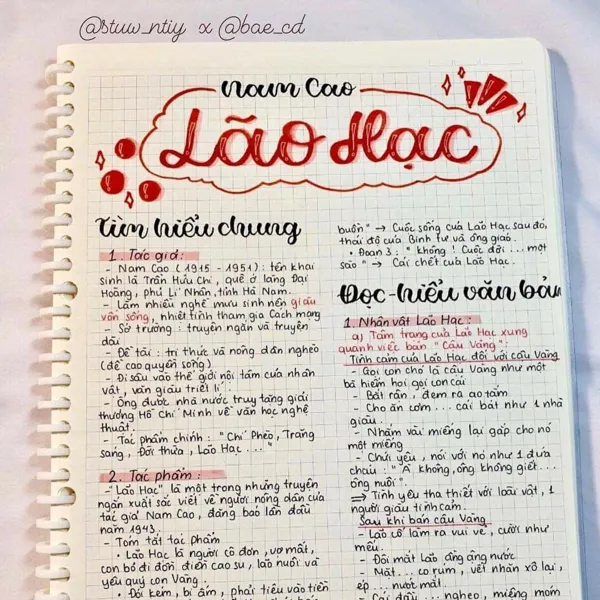 @stuw_ntiy x @bae_cd
Nam Cao
Lão Hạc
Tìm hiểu chung
1. Tác giả:
- Nam Cao (1915 - 1951): tên khai
sinh là Trần Hữu Chi, quê ở làng Đại
Hoàng, phủ Lí Nhân, tỉnh Hà Nam.
- Làm nhiều nghề mưu sinh nên giàu
vốn sống, nhiệt tình tham gia Cách mạng
- Sở trường: truyện ngắn và truyện
dài
- Đề tài: trí thức và nông dân nghèo
(đề cao quyền sống)
- Đi sâu vào thế giới nội tâm của nhân
vật, văn giàu triết lí.
- Ông được nhà nước truy tặng giải
thưởng Hồ Chí Minh về văn học nghệ
thuật.
- Tác phẩm chính: "Chí Phèo, Trăng
sáng, Đời thừa, Lão Hạc ..."
2. Tác phẩm:
- "Lão Hạc" là một trong những truyện
ngắn xuất sắc viết về người nông dân của
tác giả Nam Cao, đăng báo lần đầu
năm 1943.
- Tóm tắt tác phẩm
• Lão Hạc là người cô đơn, vợ mất,
con bỏ đi đồn điền cao su, lão nuôi và
yêu quý con Vàng.
• Đói kém, bị ốm, phải tiêu vào tiền
buồn" → Cuộc sống của Lão Hạc sau đó,
thái độ của Binh Tư và ông giáo.
• Đoạn 3: "Không! Cuộc đời ... một
sào" → Cái chết của Lão Hạc.
Đọc-hiểu văn bản
1. Nhân vật Lão Hạc:
a) Tâm trạng của Lão Hạc xung
quanh việc bán "Cậu Vàng":
Tình cảm của Lão Hạc đối với cậu Vàng
- Gọi con chó là cậu Vàng như một
bà hiếm hoi gọi con cái
- Bắt rận, đem ra ao tắm
- Cho ăn cơm ... cái bát như 1 nhà
giàu.
- Nhắm vài miếng lại gắp cho nó
một miếng
- Chửi yêu, nói với nó như 1 đứa
cháu: "À không, ông không giết ...
ông nuôi".
⇒ Tình yêu tha thiết với loài vật, 1
người giàu tình cảm.
Sau khi bán cậu Vàng
- Lão cố làm ra vui vẻ, cười như
mếu.
- Đôi mắt Lão ầng ậng nước
- Mặt ... co rúm, vết nhăn xô lại,
ép ... nước mắt.
- Cái đầu ... ngẹo, miệng móm